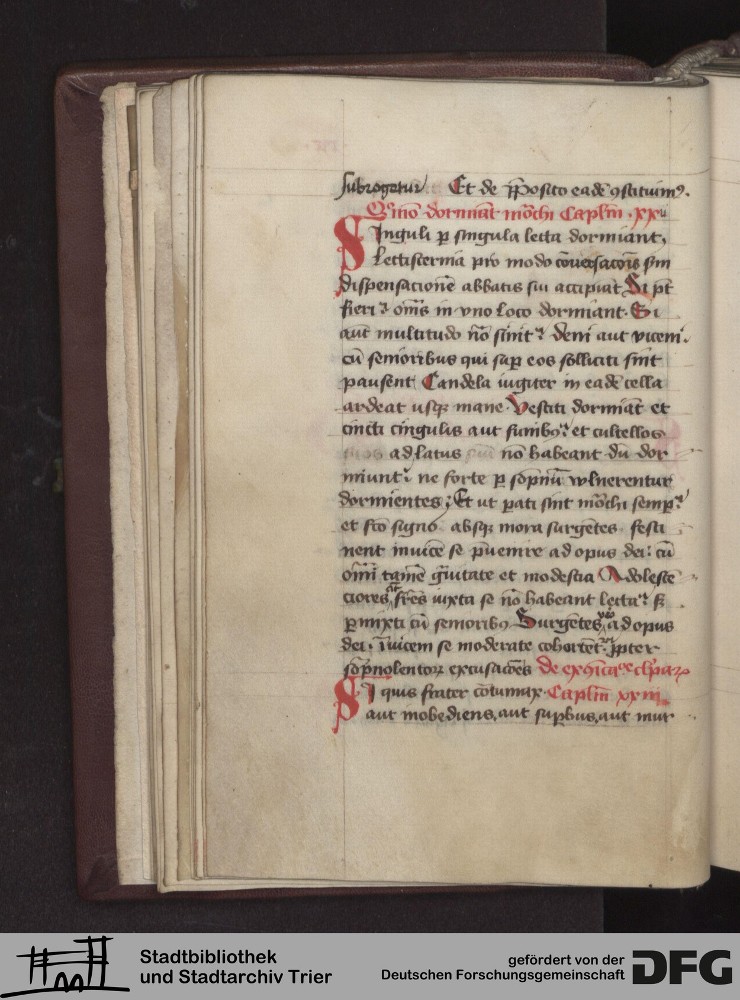 subrogetur Et de p̄posito eadē ꝯstituimꝰ.
Quō dormiāt mōchi Caplm̄ .xxii
Singuli ꝑ singula lecta dormiant,
Lectisternia pro modo cōuersacōis sm
dispensacionē abbatis sui accipiāt Si pt
fieri oms in vno loco dormiant. Si
aūt multitudo nō sinit deni aut viceni
cū senioribus qui suꝑ eos solliciti sint
pausent Candela iugiter in eadē cella
ardeat usqꝫ mane Vestiti dormiāt et
cincti cingulis aut funibꝰ et cultellos
suos ad latus nō habeant dū dor
miunt ne forte ꝑ sōpnū vulnerentur
dormientes; Et ut parati sint mōchi semꝑ
et fc̄o signo absqꝫ mora surgētes festi
nent inuicē se p̄uenire ad opus dei: cū
omī tamē g̃uitate et modestia Adolescē
ciores aūt fr̄es iuxta se nō habeant lecta sꝫ
ꝑmixti cū senioribꝰ Surgētes v̊o ad opus
dei. Īuicem se moderate cohortēt̃ ꝓpter
sōpnolentoꝝ excusacōēs De exꝯicac̄e clpaꝝ
Si quis frater cōtumax Caplm̄ xxiii
aut inobediens, aut suꝑbus, aut mur
Stadtbibliothek
und Stadtarchiv Trier
gefördert von der
Deutschen Forschungsgemeinschaft
DFG